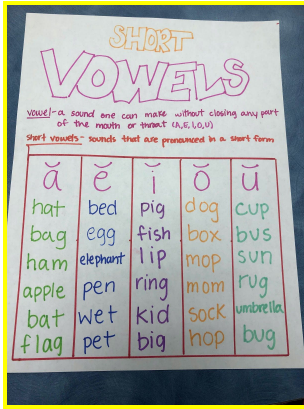 SHORT
VOWELS
vowel - a sound one can make without closing any part
of the mouth or throat (A, E, I, O, U)
short vowels - sounds that are pronounced in a short form
ă ĕ ĭ ŏ ŭ
hat bed pig dog cup
bag egg fish box bus
ham elephant lip mop sun
apple pen ring mom rug
bat wet kid sock umbrella
flag pet big hop bug